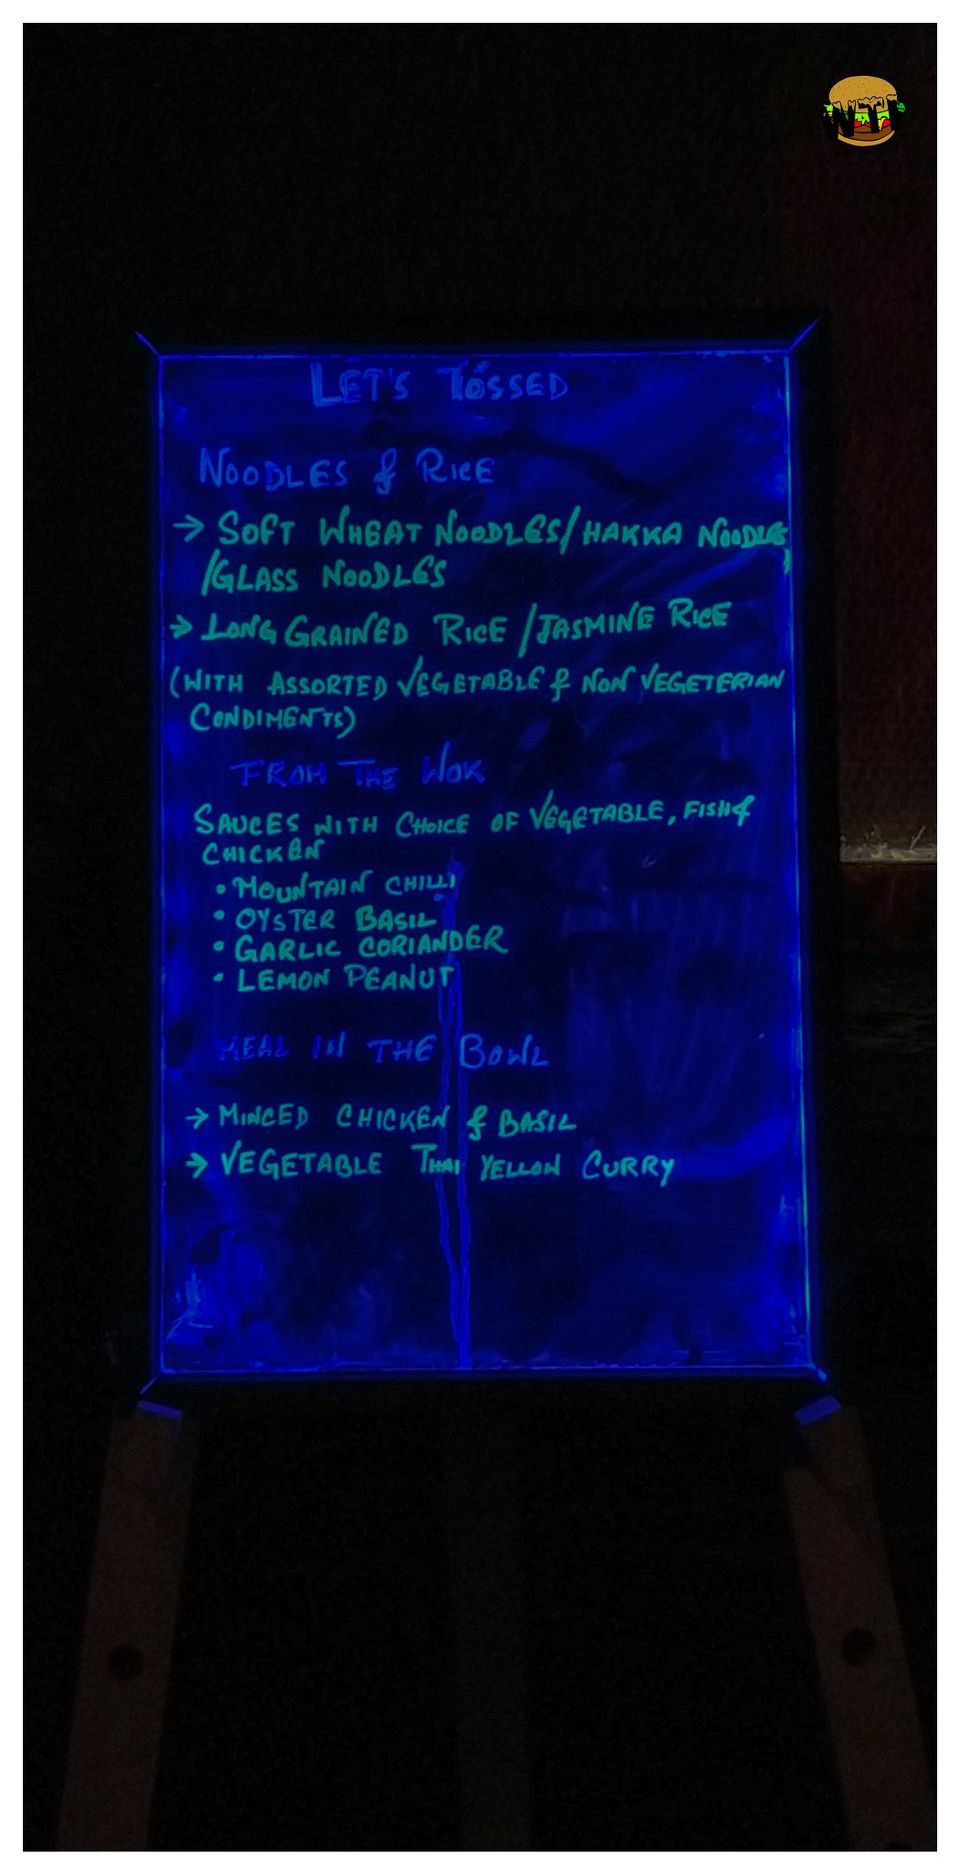 WTF
LET'S TOSSED
NOODLES & RICE
→ SOFT WHEAT NOODLES/HAKKA NOODLES
/GLASS NOODLES
→ LONG GRAINED RICE/JASMINE RICE
(WITH ASSORTED VEGETABLE & NON VEGETERIAN
CONDIMENTS)
FROM THE WOK
SAUCES WITH CHOICE OF VEGETABLE, FISH &
CHICKEN
• MOUNTAIN CHILLI
• OYSTER BASIL
• GARLIC CORIANDER
• LEMON PEANUT
MEAL IN THE BOWL
→ MINCED CHICKEN & BASIL
→ VEGETABLE THAI YELLOW CURRY